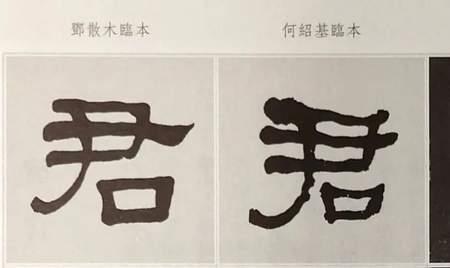 鄧散木臨本
何紹基臨本
君
君